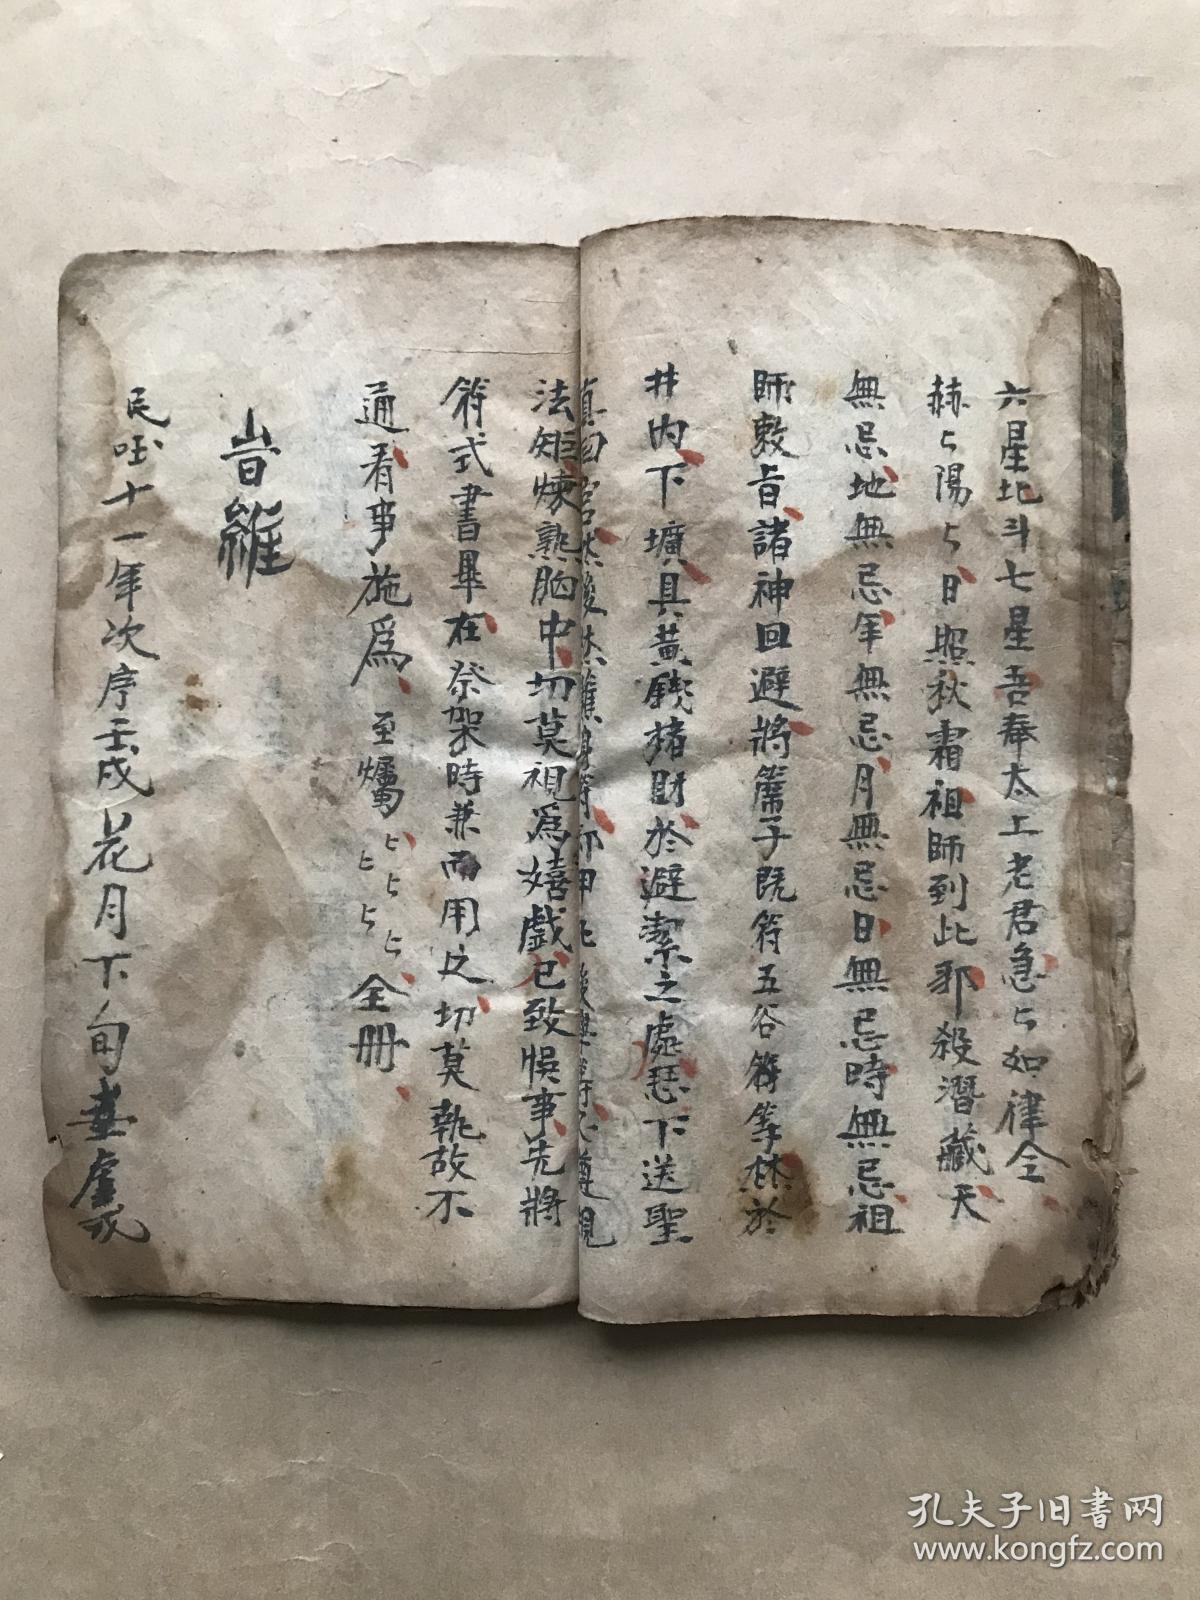 六星北斗七星吾奉太上老君急㇉如律令
赫㇉陽㇉日照秋霜祖師到此邪殺潛藏天
無忌地無忌年無忌月無忌日無忌時無忌祖
師敕旨諸神回避將簷子既符五谷符等焚於
井內下壙具黃錢楮財於避潔之處丟下送聖
法矩煉熟胸中切莫視為嬉戲已致悞事先將
符式書畢在祭架時兼而用之切莫執故不
通看事施為至囑㇉㇉㇉㇉㇉全冊
旹維
民國十一年次序壬戌花月下旬
孔夫子旧书网
www.kongfz.com